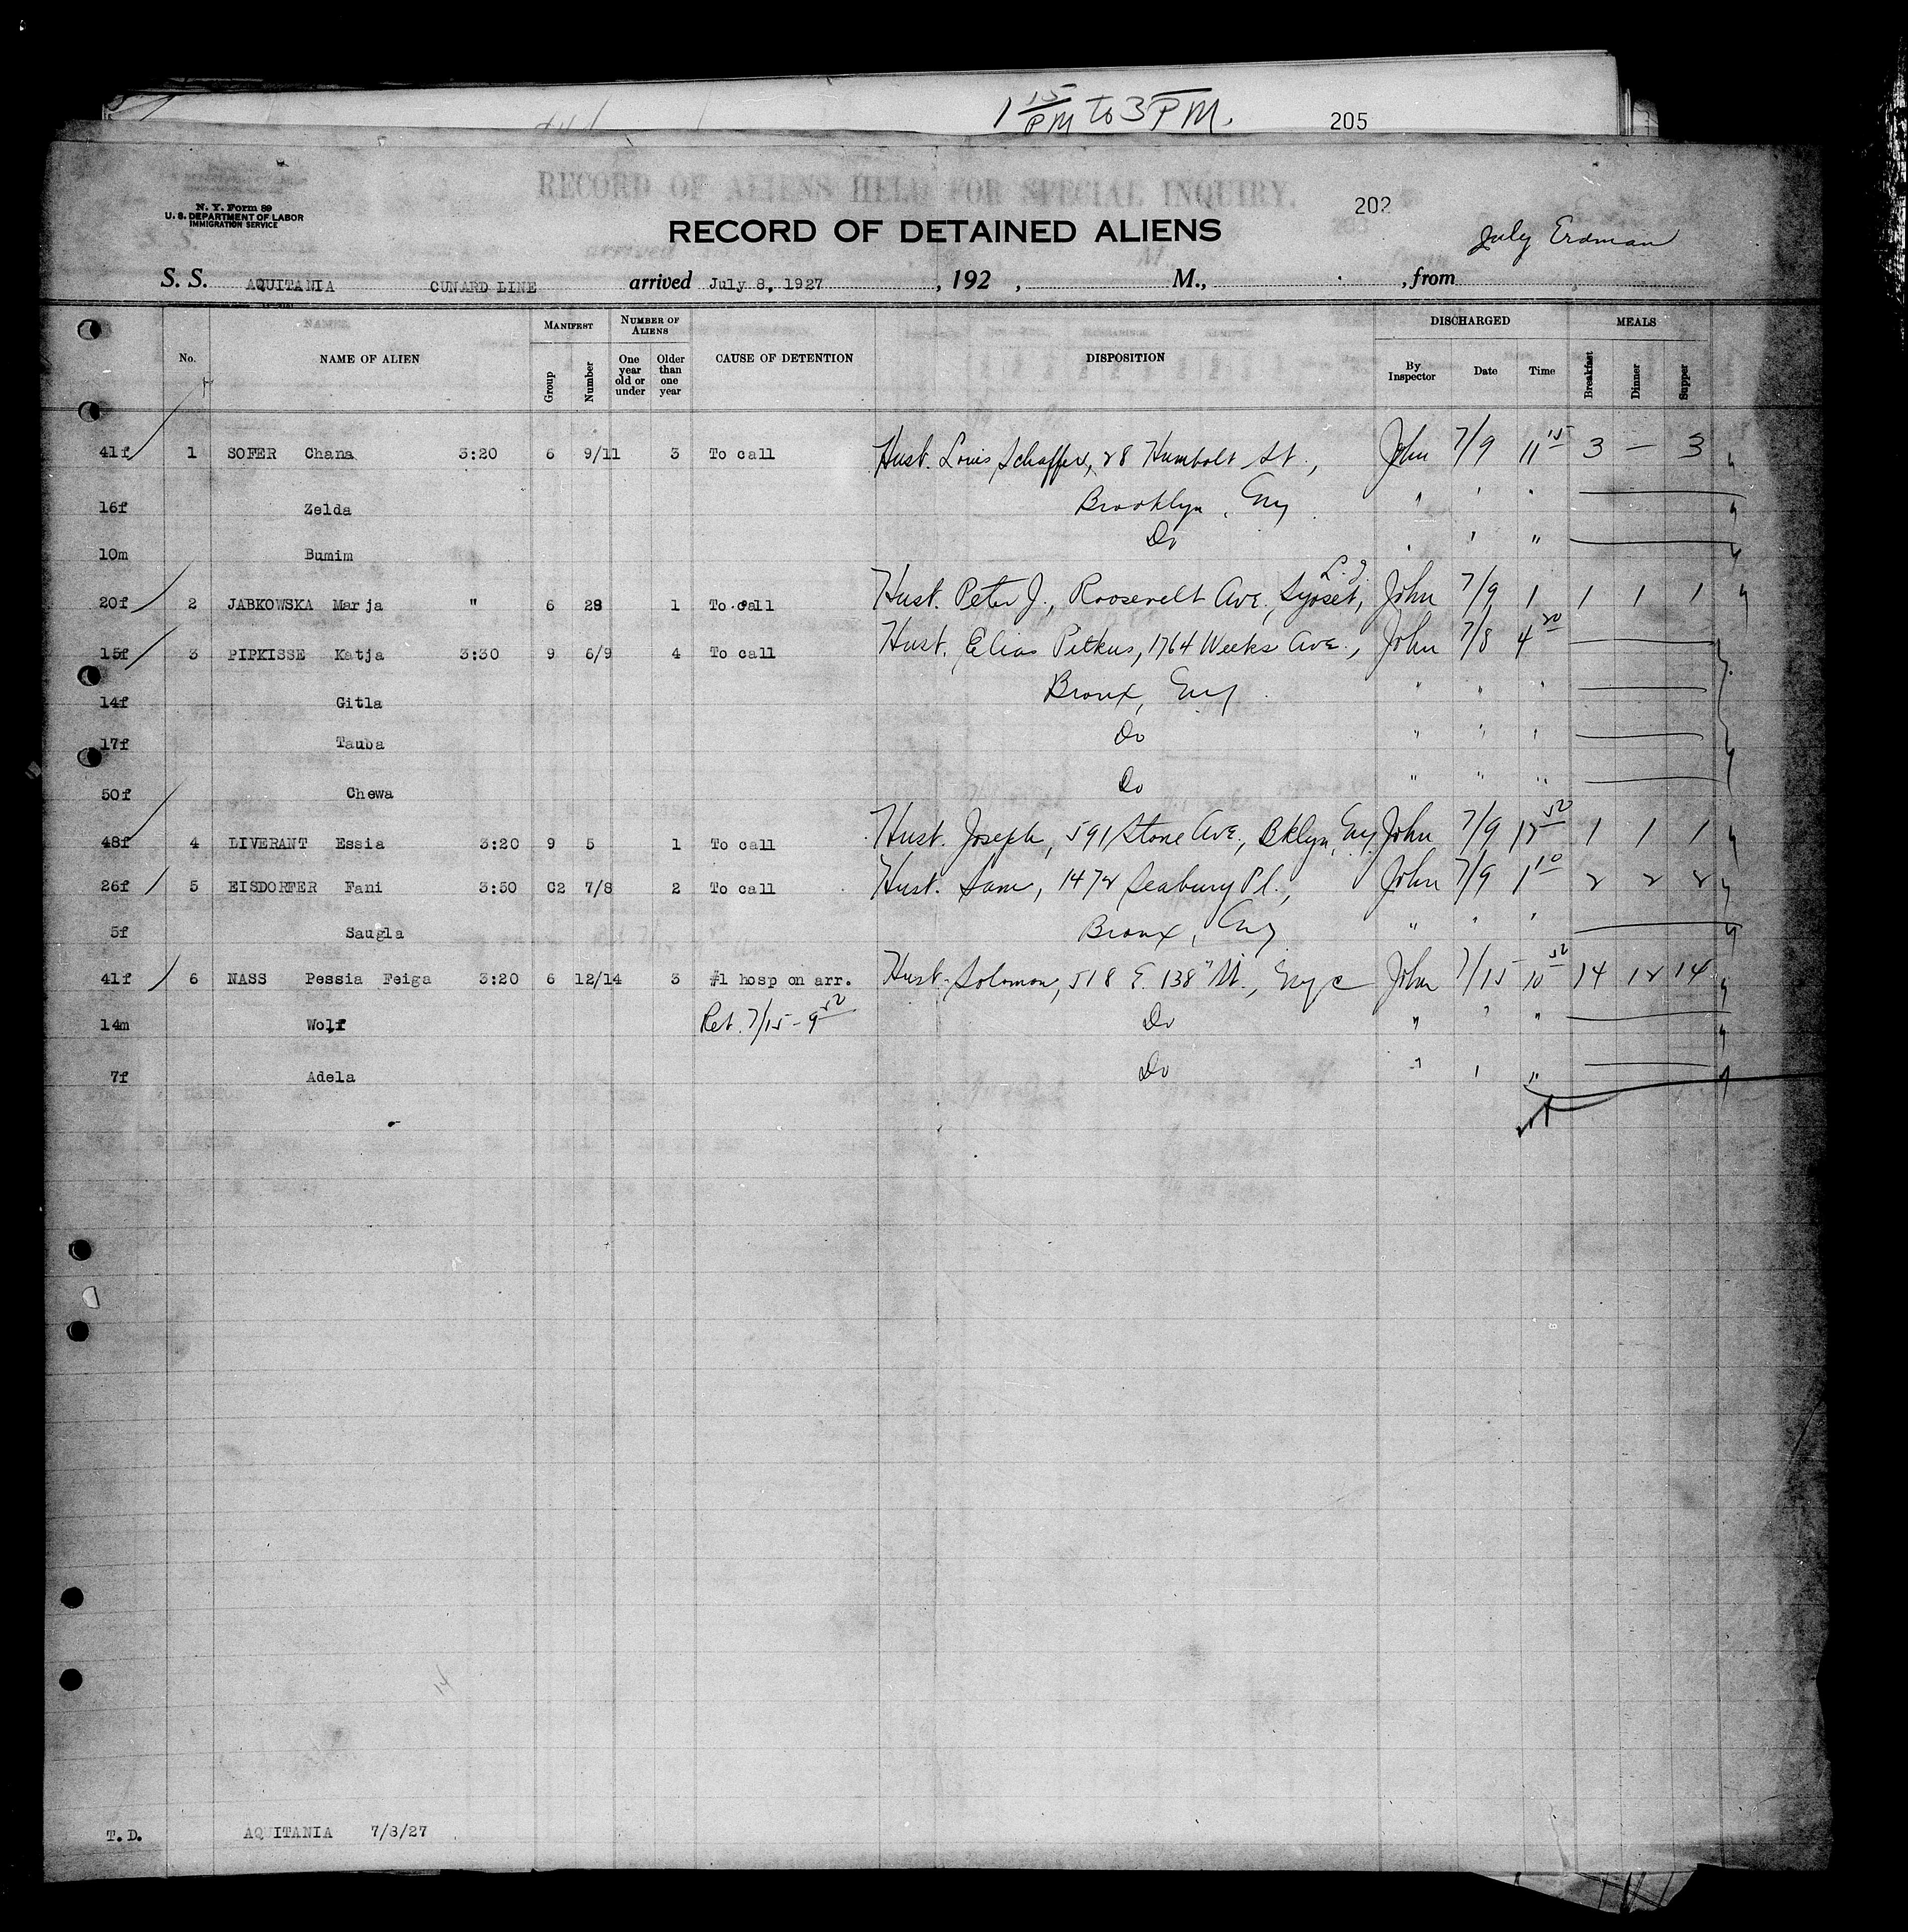 1 15/PM to 3 PM.
205
N. Y. Form 89
U. S. DEPARTMENT OF LABOR
IMMIGRATION SERVICE
RECORD OF ALIENS HELD FOR SPECIAL INQUIRY.
202
RECORD OF DETAINED ALIENS
July Erdman
S. S. AQUITANIA CUNARD LINE arrived July 8, 1927 , 192 , M., , from
No. NAME OF ALIEN MANIFEST Group Number NUMBER OF ALIENS One year old or under Older than one year CAUSE OF DETENTION DISPOSITION DISCHARGED By Inspector Date Time MEALS Breakfast Dinner Supper
41f 1 SOFER Chana 3:20 6 9/11 3 To call Hust. Louis Schaffer, 28 Humbolt St., John 7/9 11 15 3 — 3
16f Zelda Brooklyn, Cny " " "
10m Bumim Do " " "
20f 2 JABKOWSKA Marja " 6 28 1 To call Hust. Peter J., Roosevelt Ave., Syoset, L.I. John 7/9 1 1 1 1
15f 3 PIPKISSE Katja 3:30 9 6/9 4 To call Hust. Elias Pitkus, 1764 Weeks Ave., John 7/8 4 20
14f Gitla Bronx, Cny " " "
17f Tauba Do " " "
50f Chewa Do " " "
48f 4 LIVERANT Essia 3:20 9 5 1 To call Hust. Joseph, 591 Stone Ave., Bklyn, Cny John 7/9 12 50 1 1 1
26f 5 EISDORFER Fani 3:50 C2 7/8 2 To call Hust. Sam, 1472 Seabury Pl., John 7/9 1 10 2 2 2
5f Saugla Bronx, Cny " " "
41f 6 NASS Pessia Feiga 3:20 6 12/14 3 #1 hosp on arr. Hust. Solomon, 518 E. 138" St., Cnyc John 7/15 10 50 14 12 14
14m Wolf Ret. 7/15 - 9 50 Do " " "
7f Adela Do " " "
14
T.D. AQUITANIA 7/8/27